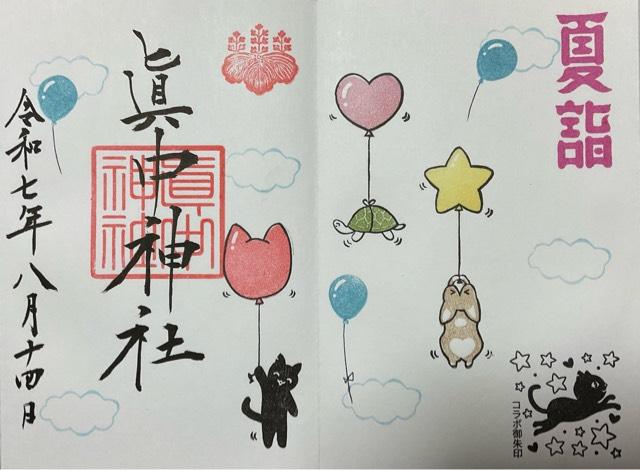 夏詣
眞中神社
令和七年八月十四日
コラボ御朱印